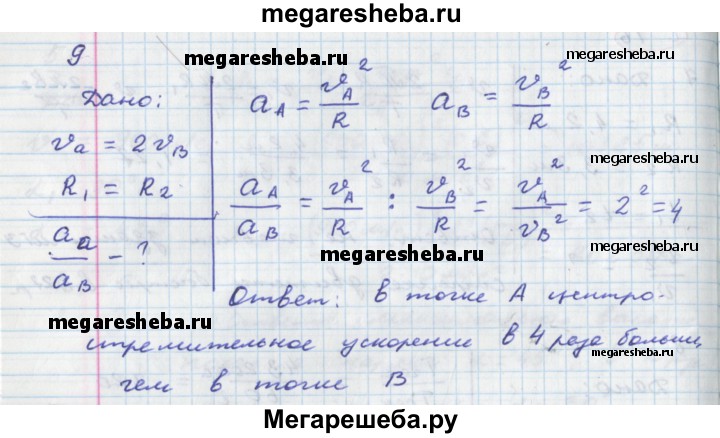 megaresheba.ru
9
megaresheba.ru
megaresheba.ru
Дано:
v_a = 2v_B
R_1 = R_2
a_a/a_B - ?
a_A = v_A^2/R a_B = v_B^2/R
megaresheba.ru
a_A/a_B = v_A^2/R : v_B^2/R = v_A^2/v_B^2 = 2^2 = 4
megaresheba.ru
Ответ: в точке А центро-
megaresheba.ru
стремительное ускорение в 4 раза больше,
megaresheba.ru
чем в точке В
Мегарешеба.ру